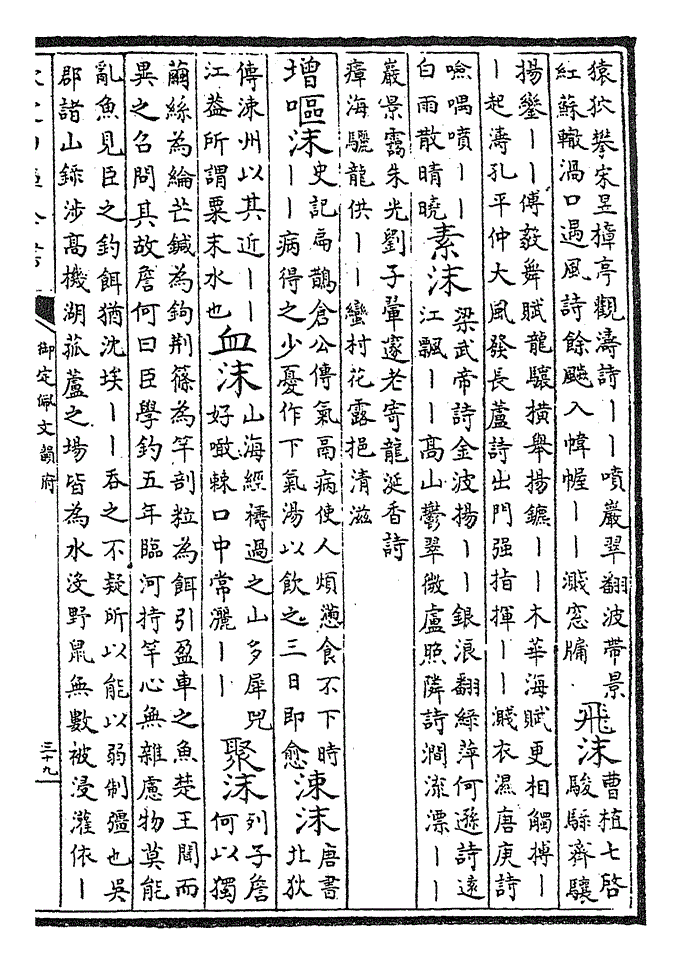 猿狖攀宋呈樟亭觀濤詩丨丨噴巖翠翻波帶景
紅蘇轍渦口遇風詩餘颷入幃幄丨丨濺窓牖
飛沫
曹植七啓
駿騄齊驤
揚鑾丨丨傅毅舞賦龍驤橫舉揚鑣丨丨木華海賦更相觸搏丨
丨起濤孔平仲大風發長蘆詩出門强指揮丨丨濺衣濕唐庚詩
噞喁噴丨丨
白雨散晴曉
素沫
梁武帝詩金波揚丨丨銀浪翻綠萍何遜詩遠
江飄丨丨高山鬱翠微盧照隣詩澗流漂丨丨
巖景靄朱光劉子翬邃老寄龍涎香詩
瘴海驪龍供丨丨蠻村花露挹清滋
增
嘔沫
史記扁鵲倉公傳氣鬲病使人煩懣食不下時
丨丨病得之少憂作下氣湯以飲之三日即愈
涑沫
唐書
北狄
傳涑州以其近丨丨
江葢所謂粟末水也
血沫
山海經禱過之山多犀兕
好噉棘口中常灑丨丨
聚沫
列子詹
何以獨
繭絲為綸芒鍼為鉤荆篠為竿剖粒為餌引盈車之魚楚王聞而
異之召問其故詹何曰臣學釣五年臨河持竿心無雜慮物莫能
亂魚見臣之釣餌猶沈埃丨丨吞之不疑所以能以弱制彊也吳
郡諸山錄涉高機湖菰蘆之場皆為水沒野鼠無數被浸灌依丨
御定佩文韻府
三十九